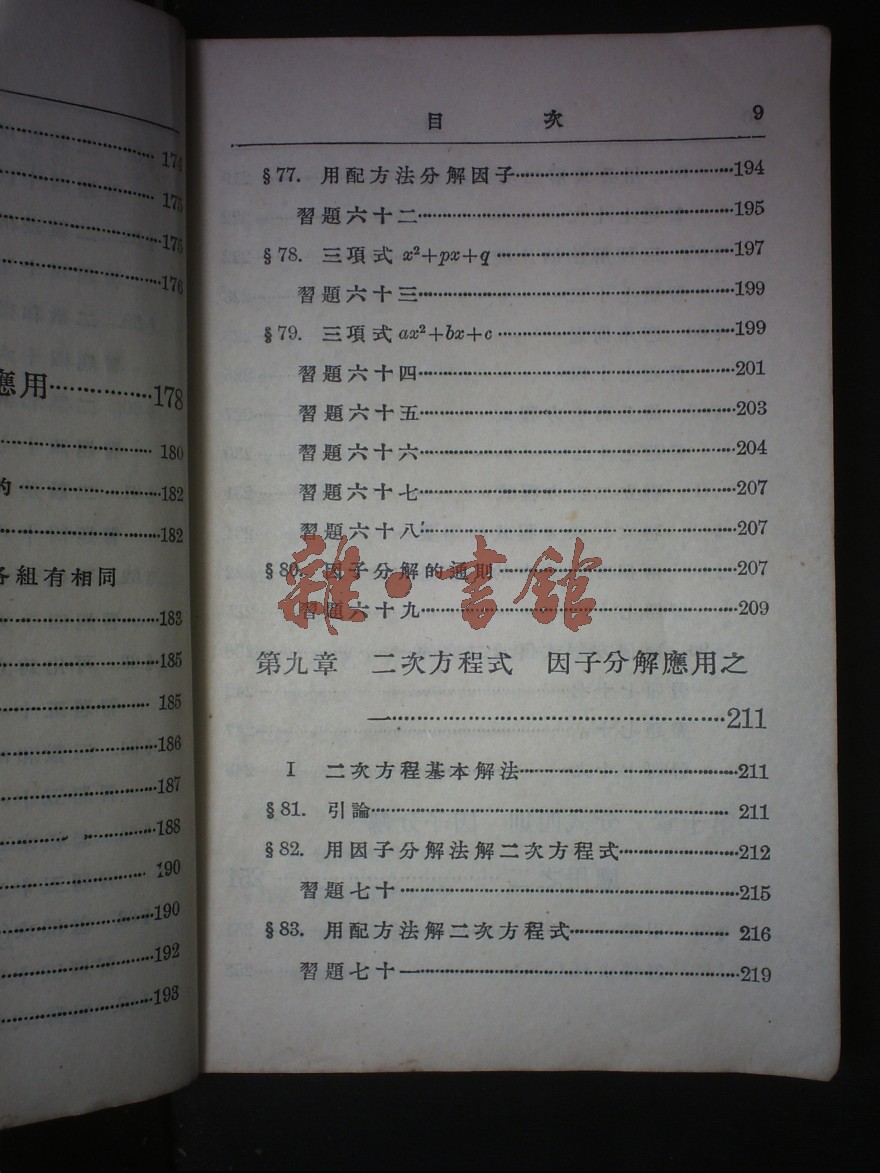 174
175
175
176
應用…………178
180
的…………182
182
各組有相同
183
185
185
186
187
188
190
190
192
193
目 次 9
§77. 用配方法分解因子…………194
習題六十二…………195
§78. 三項式 x²+px+q…………197
習題六十三…………199
§79. 三項式 ax²+bx+c…………199
習題六十四…………201
習題六十五…………203
習題六十六…………204
習題六十七…………207
習題六十八…………207
§80. 因子分解的通則…………207
習題六十九…………209
雜·書館
第九章 二次方程式 因子分解應用之
一…………211
I 二次方程基本解法…………211
§81. 引論…………211
§82. 用因子分解法解二次方程式…………212
習題七十…………215
§83. 用配方法解二次方程式…………216
習題七十一…………219